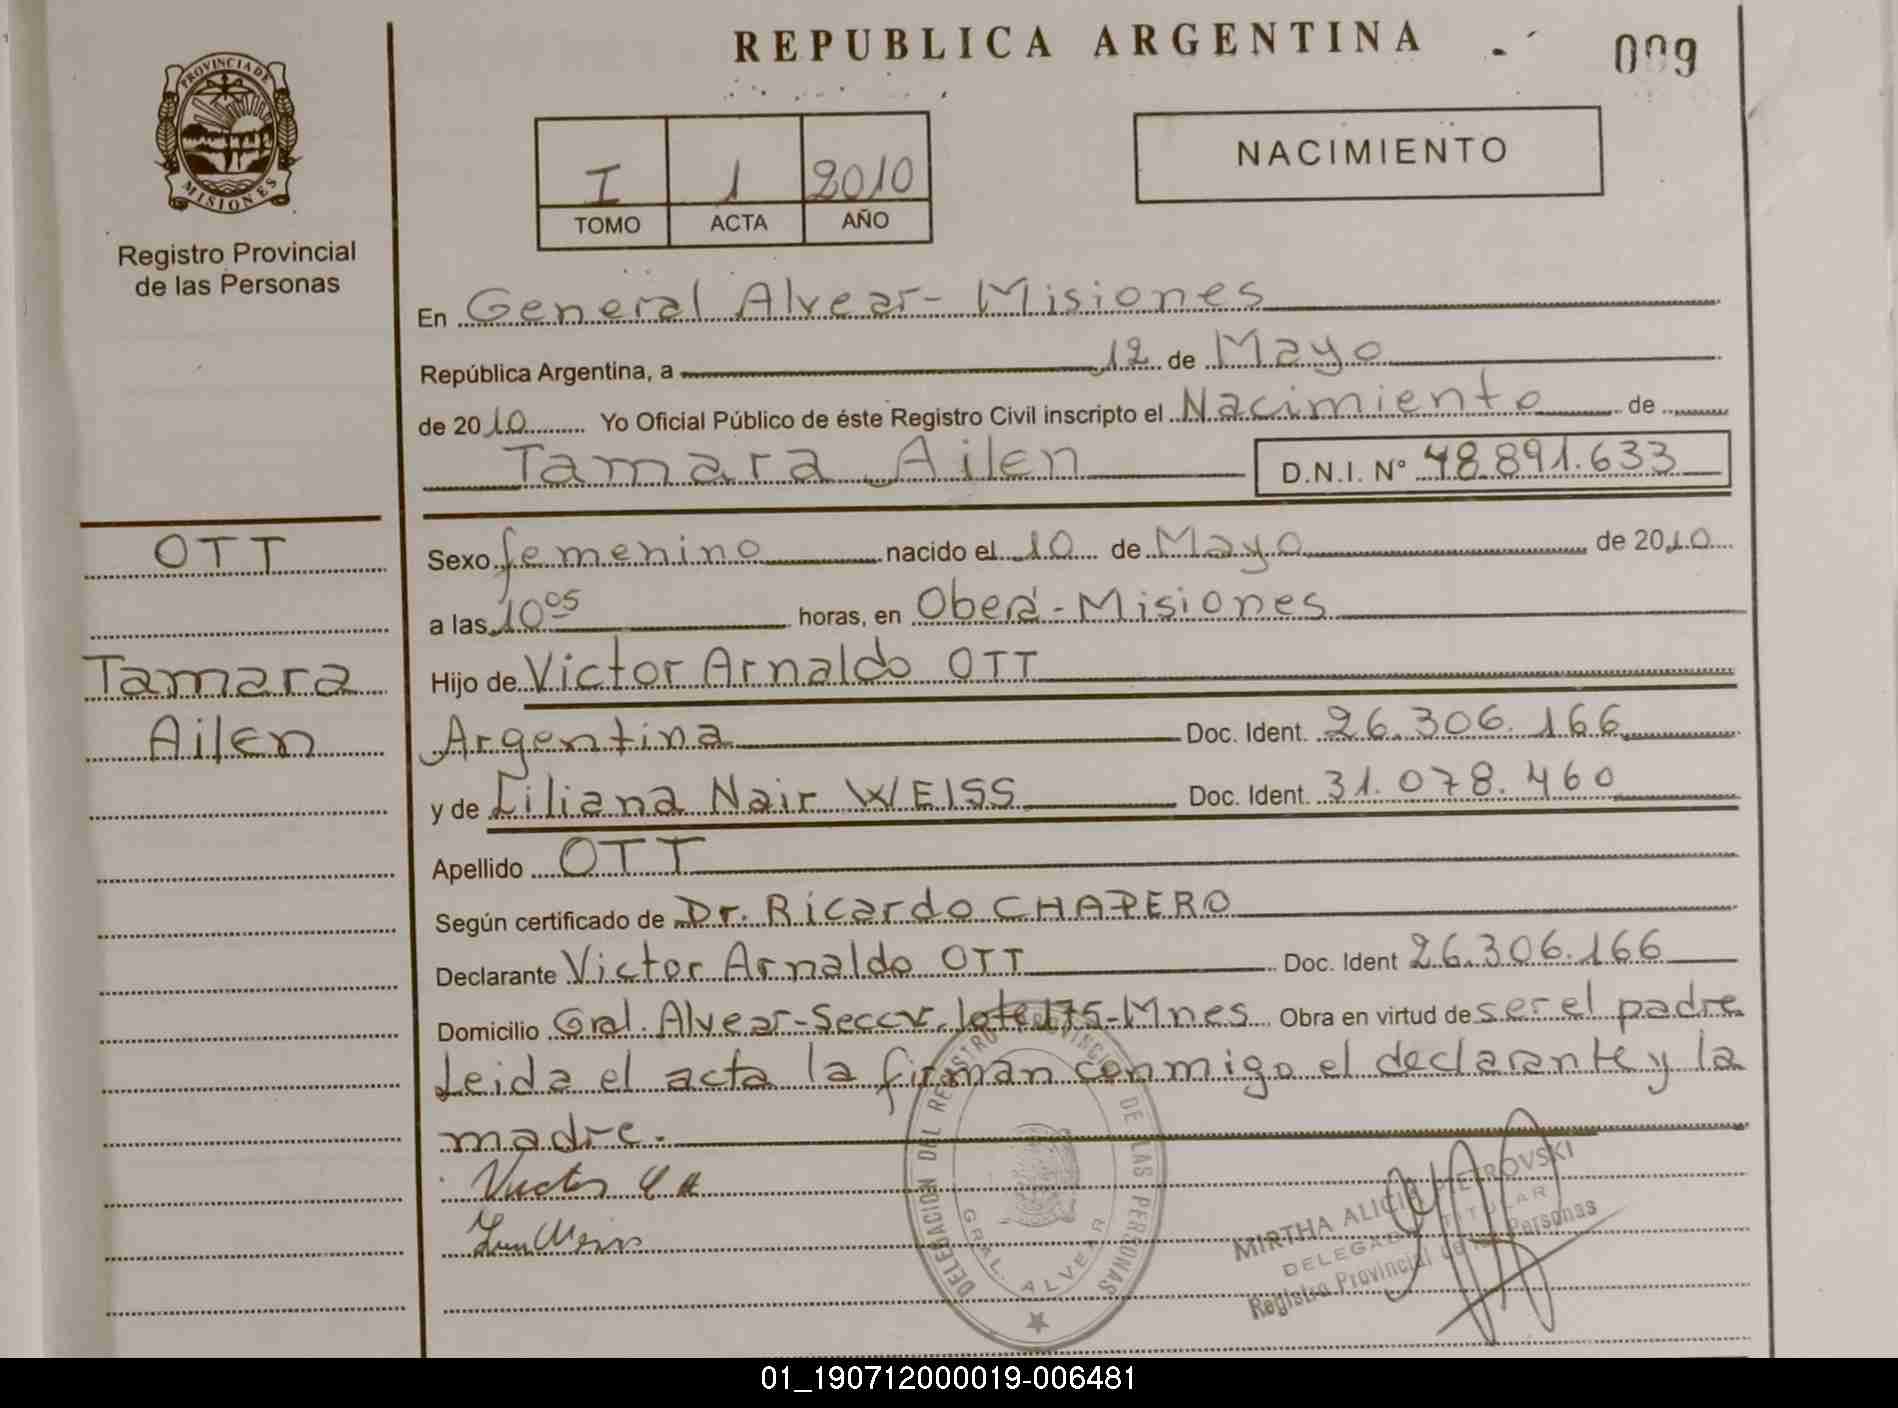 REPUBLICA ARGENTINA
009
PROVINCIA DE MISIONES
Registro Provincial
de las Personas
I 1 2010
TOMO ACTA AÑO
NACIMIENTO
En General Alvear - Misiones
República Argentina, a 12 de Mayo
de 2010 Yo Oficial Público de éste Registro Civil inscripto el Nacimiento de
Tamara Ailen D.N.I. N° 48.891.633
OTT
Tamara
Ailen
Sexo femenino nacido el 10 de Mayo de 2010
a las 10 05 horas, en Oberá - Misiones
Hijo de Victor Arnaldo OTT
Argentina Doc. Ident. 26.306.166
y de Liliana Nair WEISS Doc. Ident. 31.078.460
Apellido OTT
Según certificado de Dr. Ricardo CHAPERO
Declarante Victor Arnaldo OTT Doc. Ident 26.306.166
Domicilio Gral. Alvear - Secc V. lote 175 - Mnes Obra en virtud de ser el padre
Leida el acta la firman conmigo el declarante y la
madre.
Victor Ott
DELEGACION DEL REGISTRO PROVINCIAL DE LAS PERSONAS
GRAL. ALVEAR
MIRTHA ALICIA PIETROVSKI
DELEGADA TITULAR
Registro Provincial de las Personas
01_190712000019-006481